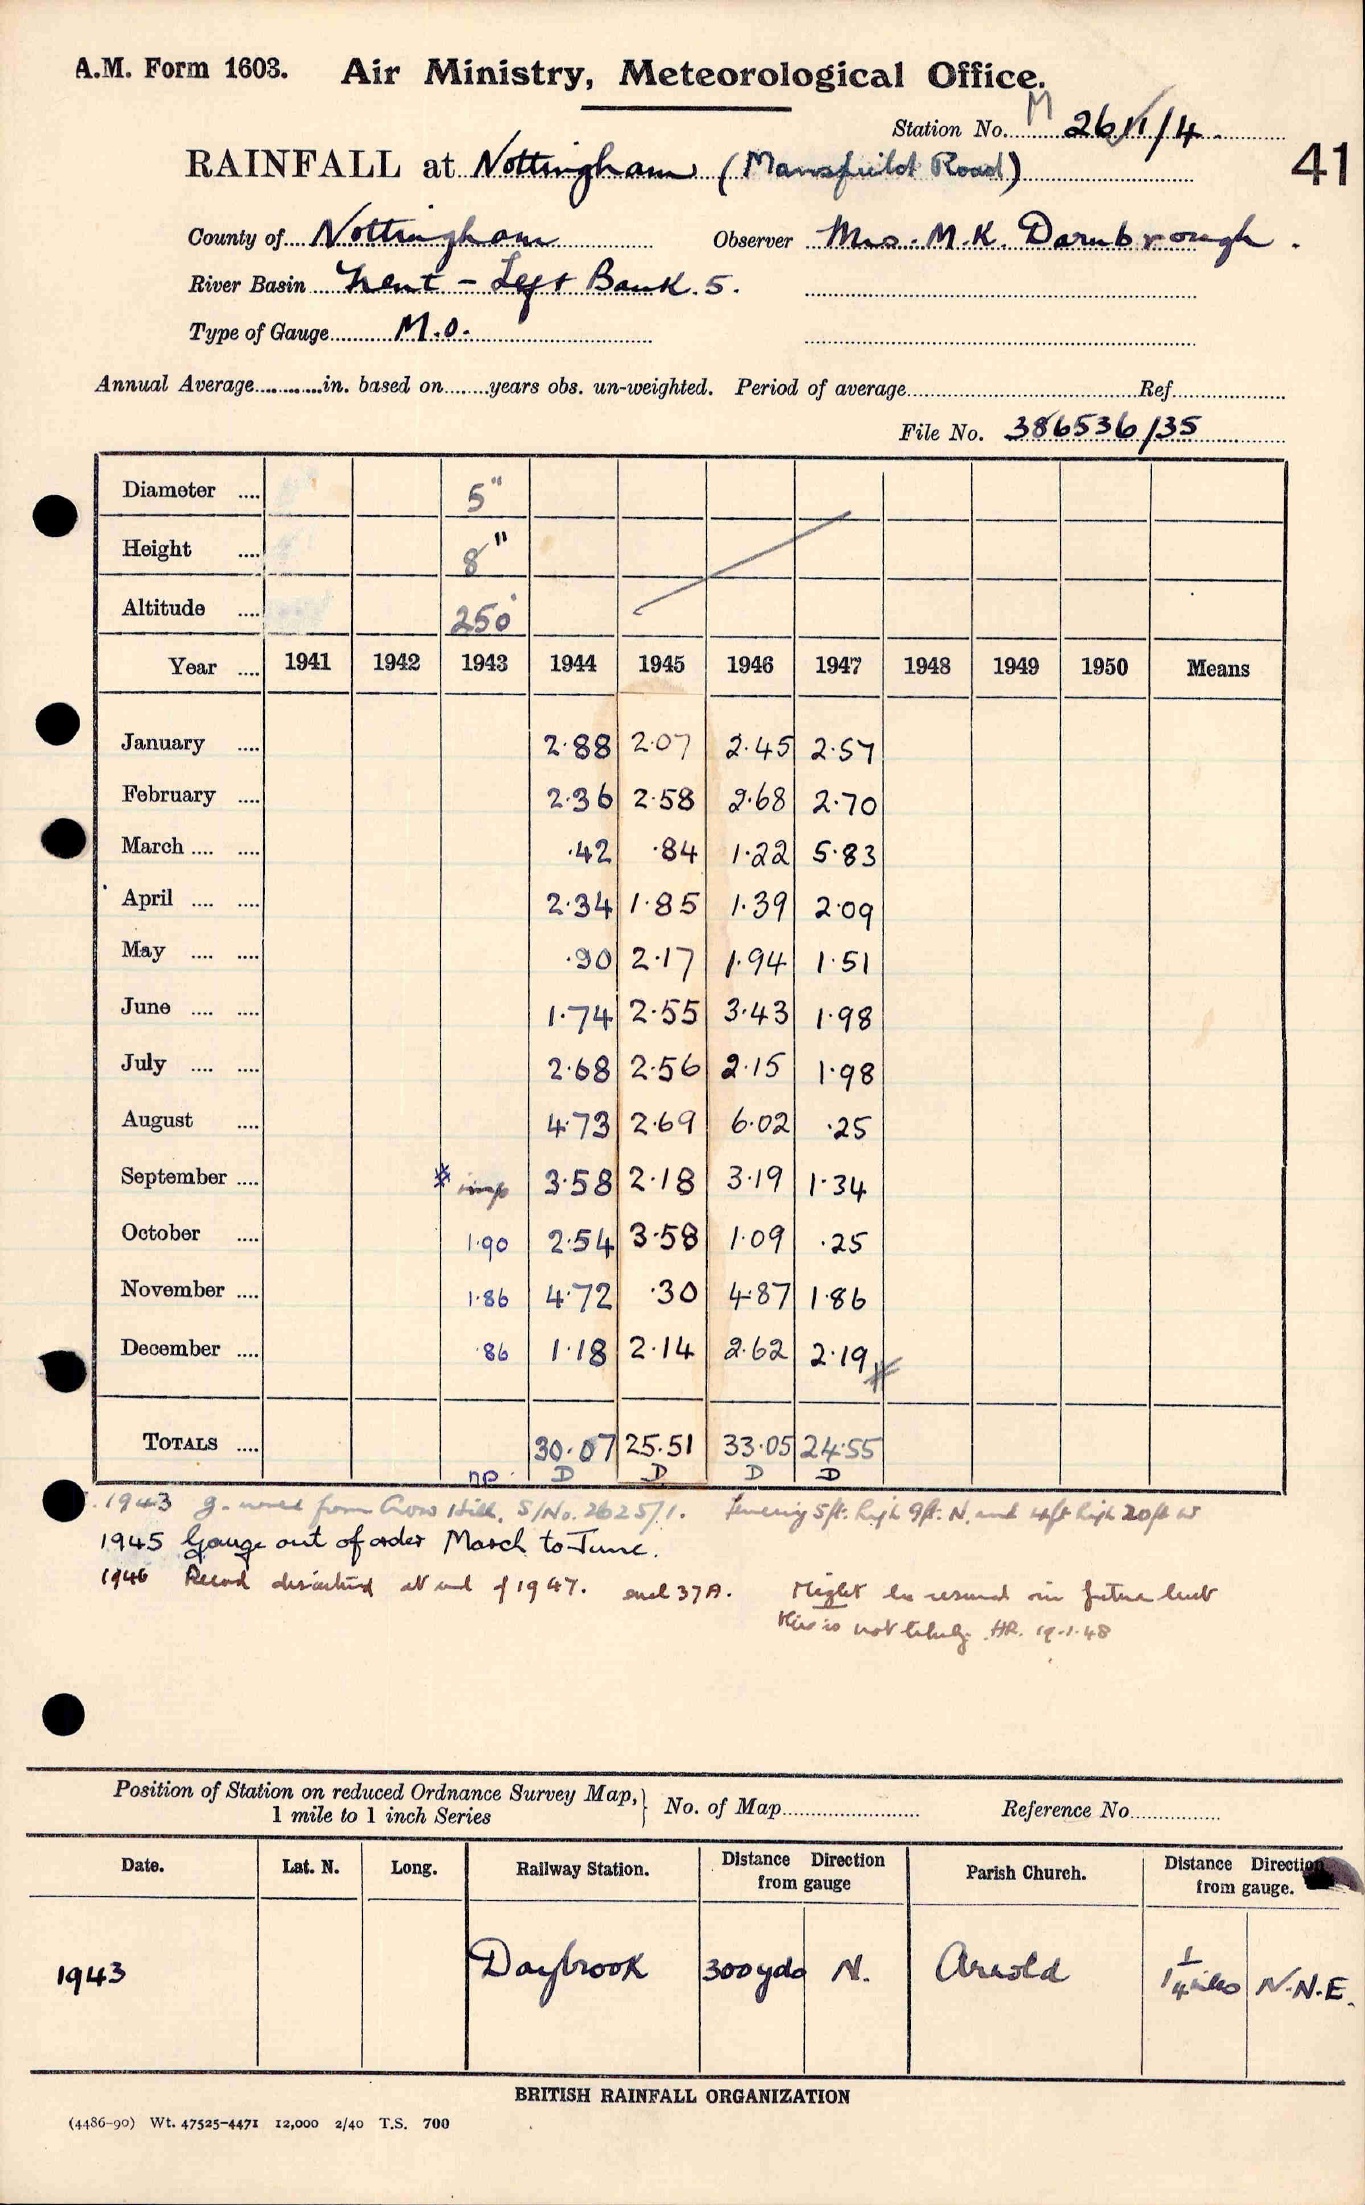 A.M. Form 1603. Air Ministry, Meteorological Office.
Station No. M 2611/4.
41
RAINFALL at Nottingham (Mansfield Road)
County of Nottingham Observer Mrs. M.K. Darnbrough.
River Basin Trent - Left Bank. 5.
Type of Gauge M.O.
Annual Average in. based on years obs. un-weighted. Period of average Ref.
File No. 386536/35
Diameter .... 5"
Height .... 8"
Altitude .... 250'
Year .... 1941 1942 1943 1944 1945 1946 1947 1948 1949 1950 Means
January .... 2.88 2.07 2.45 2.57
February .... 2.36 2.58 2.68 2.70
March .... .... .42 .84 1.22 5.83
April .... .... 2.34 1.85 1.39 2.09
May .... .... .90 2.17 1.94 1.51
June .... .... 1.74 2.55 3.43 1.98
July .... .... 2.68 2.56 2.15 1.98
August .... 4.73 2.69 6.02 .25
September .... * imp 3.58 2.18 3.19 1.34
October .... 1.90 2.54 3.58 1.09 .25
November .... 1.86 4.72 .30 4.87 1.86
December .... .86 1.18 2.14 2.62 2.19
TOTALS .... 30.07 25.51 33.05 24.55
np. D D D D
1943 g. moved from Crow Hill, S/No. 2625/1. Fencing 5ft. high 9ft. N. and 4ft high 20ft W
1945 Gauge out of order March to June.
1946 Record discontinued at end of 1947. encl 37A. Might be resumed in future but
this is not likely. HR. 19.1.48
Position of Station on reduced Ordnance Survey Map, 1 mile to 1 inch Series } No. of Map Reference No.
Date. Lat. N. Long. Railway Station. Distance Direction from gauge Parish Church. Distance Direction from gauge.
1943 Daybrook 300yds N. Arnold 1 1/4 miles N.N.E.
BRITISH RAINFALL ORGANIZATION
(4486-90) Wt. 47525-4471 12,000 2/40 T.S. 700